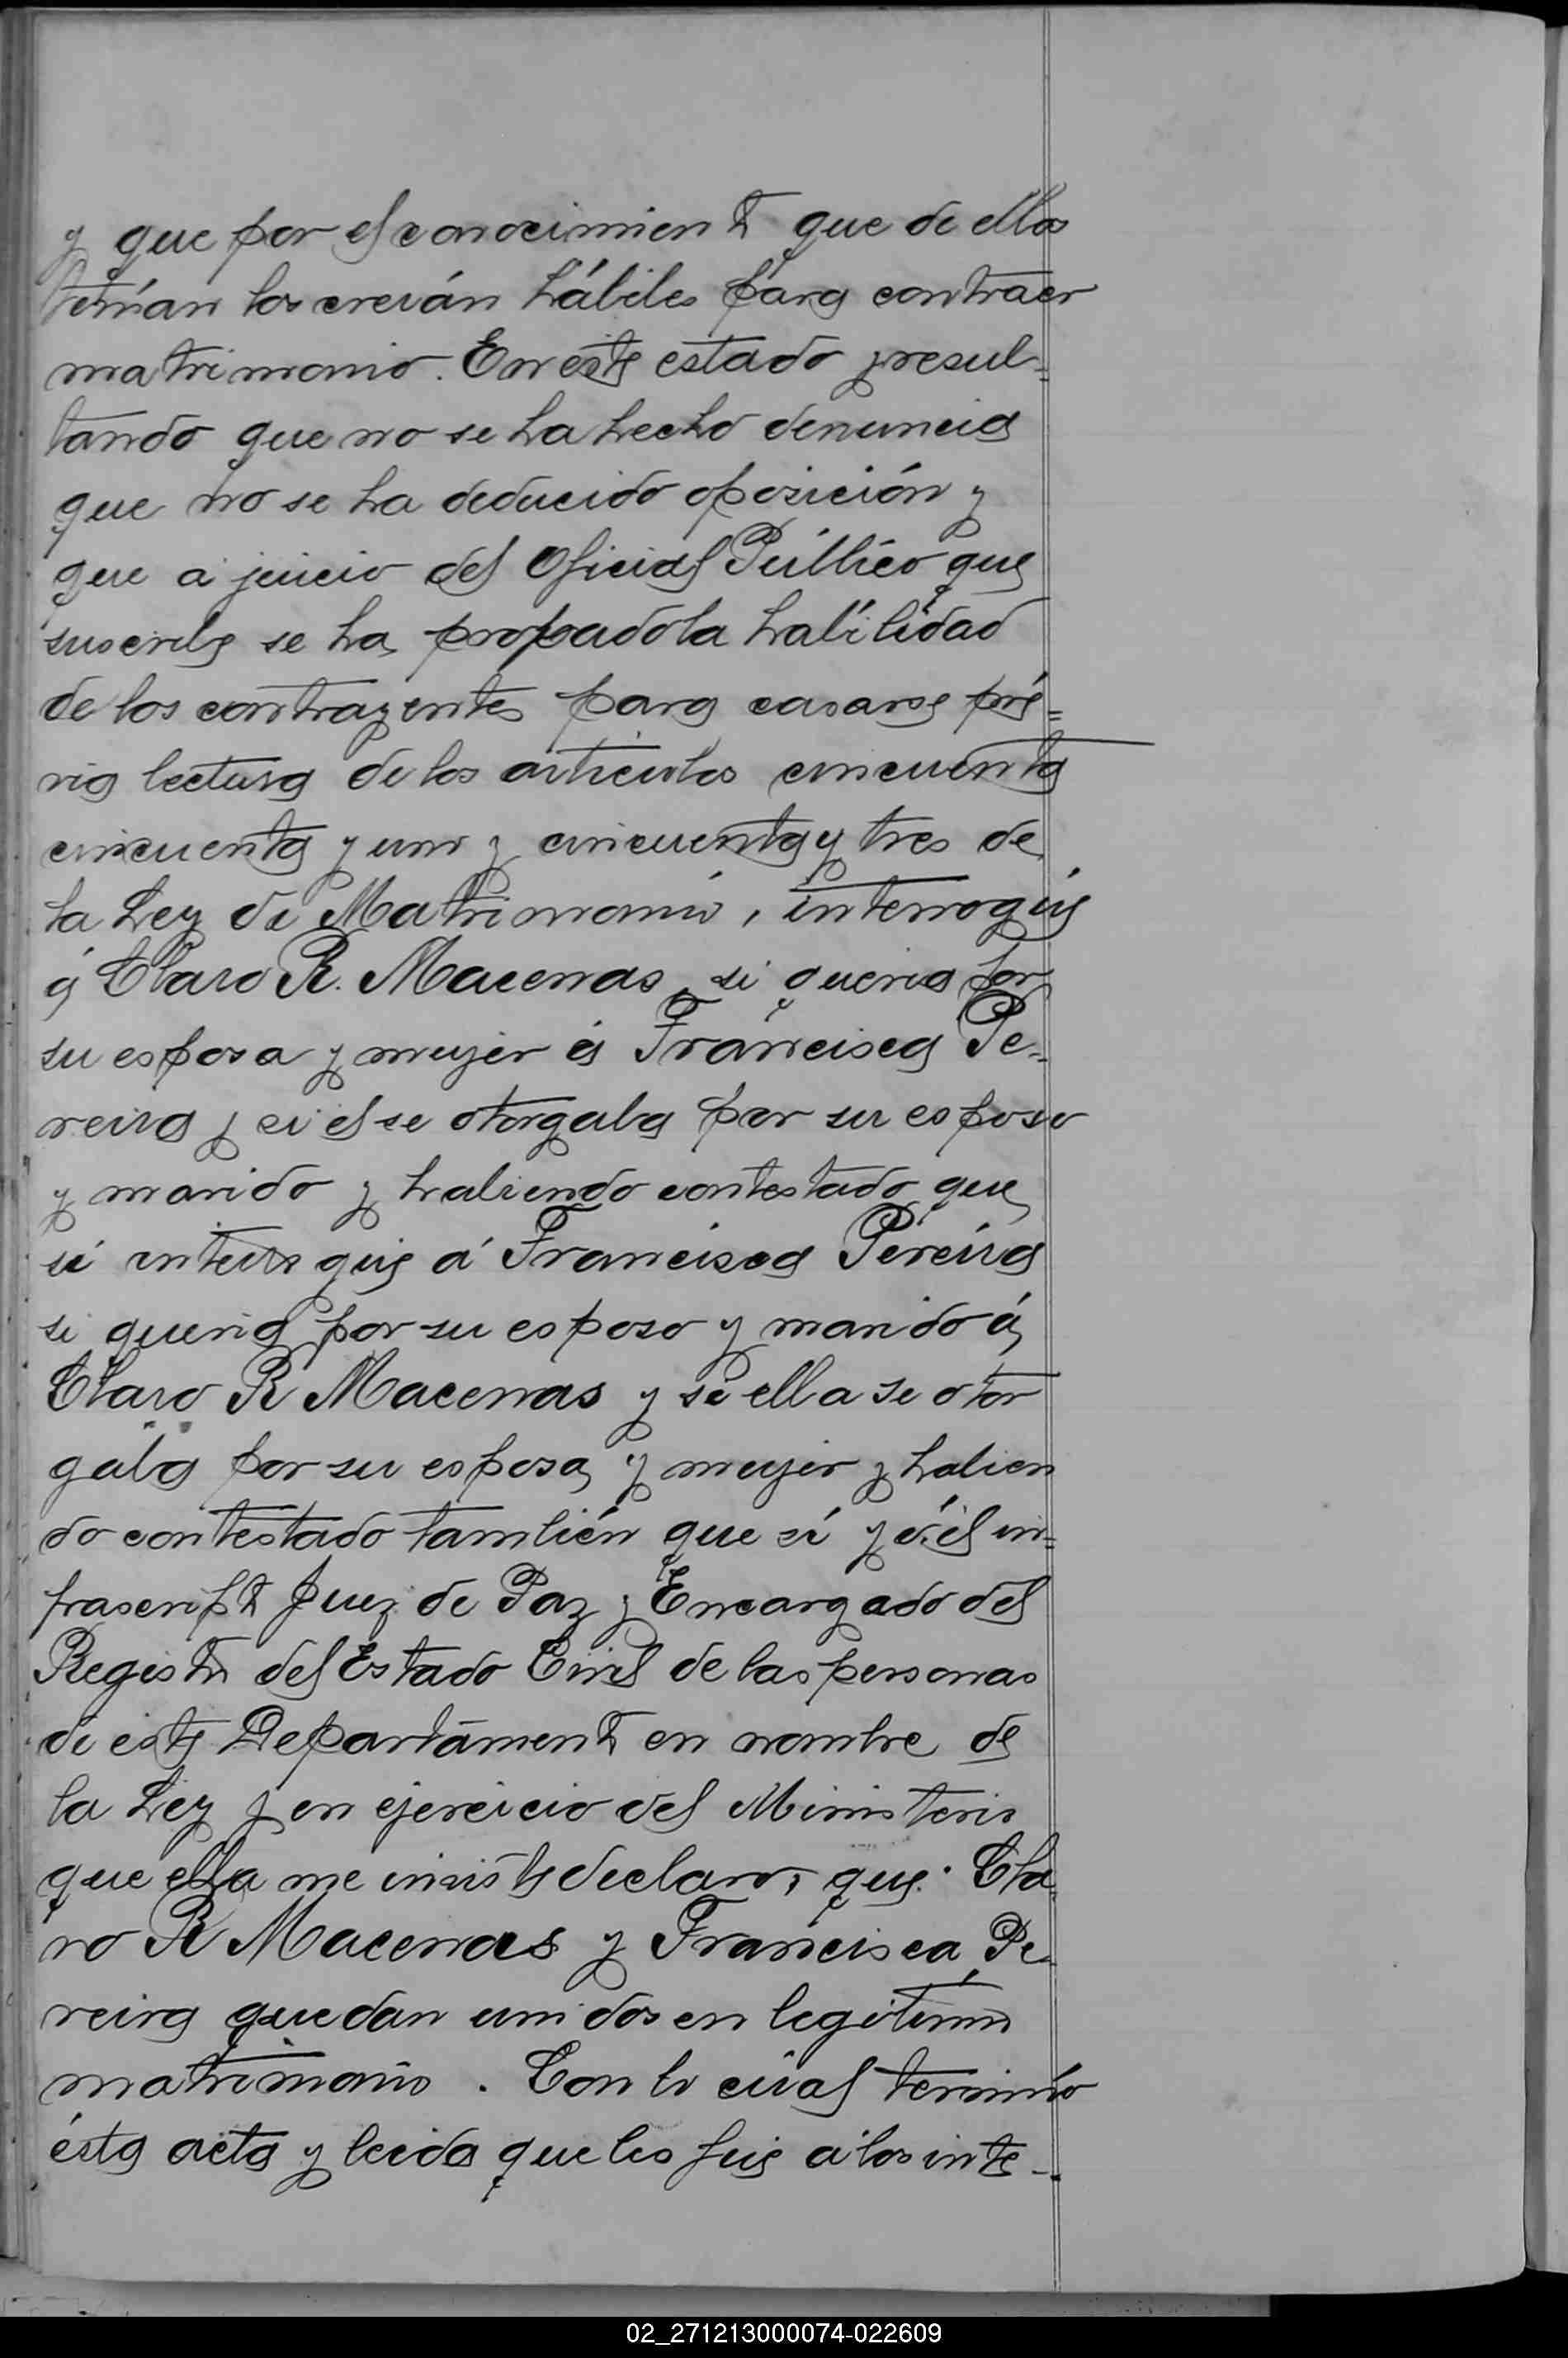 y que por el conocimiento que de ellos
tenían los creían hábiles para contraer
matrimonio. En este estado y resul-
tando que no se ha hecho denuncia
que no se ha deducido oposición y
que a juicio del Oficial Público que
suscribe se ha propado la habilidad
de los contrayentes para casarse pré-
via lectura de los artículos cincuenta
cincuenta y uno y cincuenta y tres de
la Ley de Matrimonio, interrogué
á Claro R. Macenas, si queria por
su esposa y mujer á Francisca Pe-
reira y si él se otorgaba por su esposo
y marido y habiendo contestado que
sí interrogué á Francisca Pereira
si queria por su esposo y marido á
Claro R Macenas y si ella se otor
gaba por su esposa y mujer y habien
do contestado también que sí yó él in-
frascripto Juez de Paz y Encargado del
Registro del Estado Civil de las personas
de este Departamento en nombre de
la Ley y en ejercicio del Ministerio
que ella me inviste declaro, que: Cla
ro R Macenas y Francisca Pe-
reira quedan unidos en legítimo
matrimonio. Con lo cual terminó
ésta acta y leida que les fué á los inte-
02_271213000074-022609